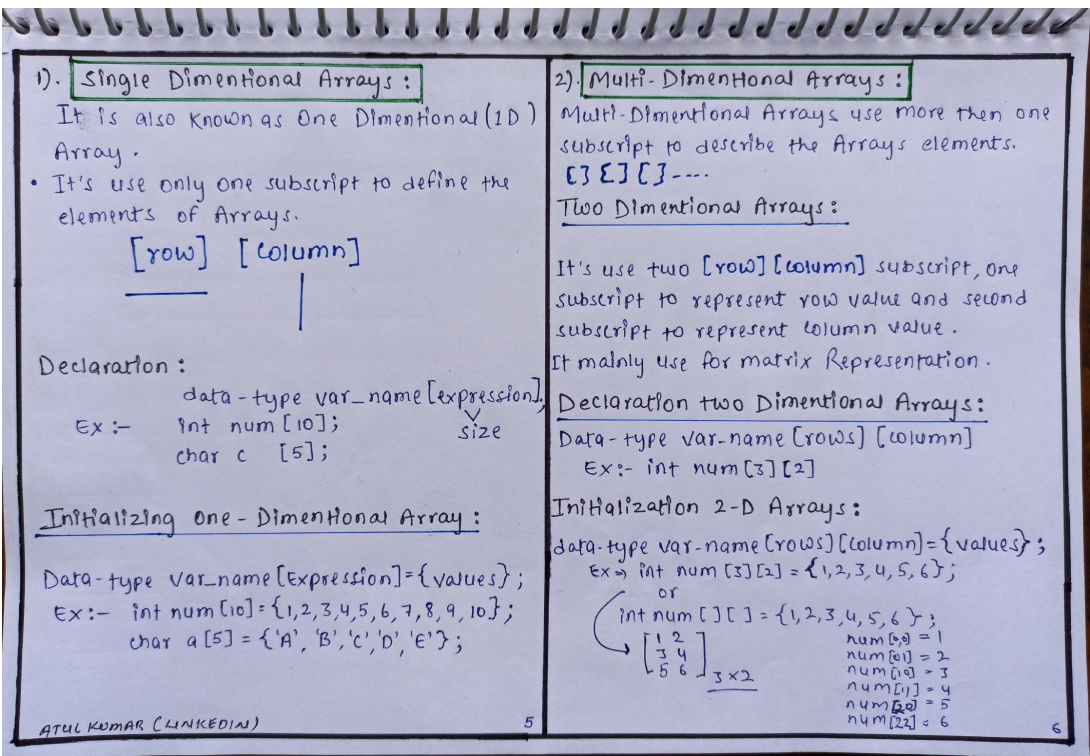 1). Single Dimentional Arrays :
It is also known as One Dimentional (1D)
Array.
• It's use only one subscript to define the
elements of Arrays.
[row] [column]
Declaration :
data-type var_name [expression];
size
Ex :- int num [10];
char c [5];
Initializing One-Dimentional Array :
Data-type var_name [Expression] = {values};
Ex :- int num [10] = {1,2,3,4,5,6,7,8,9,10};
char a [5] = {'A', 'B', 'C', 'D', 'E'};
ATUL KUMAR (LINKEDIN)
5
2). Multi-Dimentional Arrays :
Multi-Dimentional Arrays use more then one
subscript to describe the Arrays elements.
[] [] [] ----
Two Dimentional Arrays :
It's use two [row] [column] subscript, one
subscript to represent row value and second
subscript to represent column value.
It mainly use for matrix Representation.
Declaration two Dimentional Arrays :
Data-type var-name [rows] [column]
Ex :- int num [3] [2]
Initialization 2-D Arrays :
data-type var-name [rows] [column] = {values};
Ex → int num [3] [2] = {1,2,3,4,5,6};
or
int num [ ] [ ] = {1,2,3,4,5,6};
1 2
3 4
5 6
3×2
num [0,0] = 1
num [01] = 2
num [10] = 3
num [1,] = 4
num [20] = 5
num [22] = 6
6